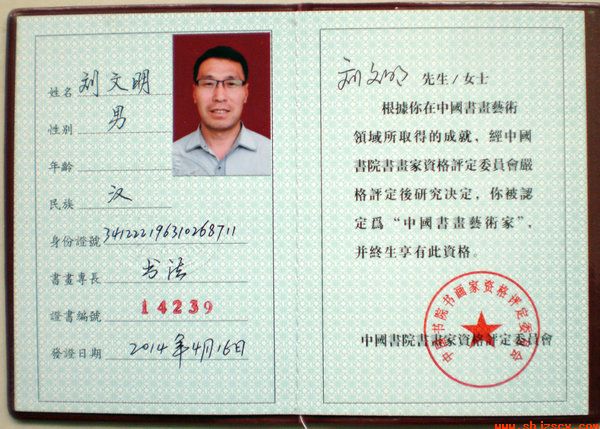 姓名 刘文明
性别 男
年齡
民族 汉
身份證號 341222196310268711
書畫專長 书法
證書編號 14239
發證日期 2014年4月16日
刘文明 先生/女士
根據你在中國書畫藝術
領域所取得的成就，經中國
書院書畫家資格評定委員會嚴
格評定後研究決定，你被認
定爲“中國書畫藝術家”，
并終生享有此資格。
中国书院书画家资格评定委员会
中國書院書畫家資格評定委員會
www.shjzscx.com